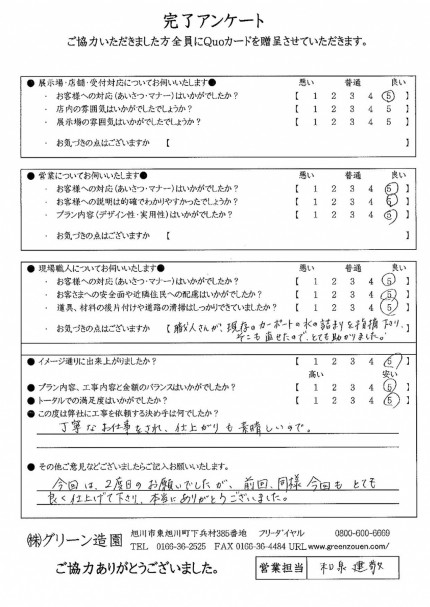 完了アンケート
ご協力いただきました方全員にQuoカードを贈呈させていただきます。
●展示場・店舗・受付対応についてお伺いいたします● 悪い 普通 良い
・ お客様への対応(あいさつ・マナー)はいかがでしたか? 【 1 2 3 4 5 】
・ 店内の雰囲気はいかがでたしでしょうか? 【 1 2 3 4 5 】
・ 展示場の雰囲気はいかがでしたでしょうか? 【 1 2 3 4 5 】
・ お気づきの点はございますか 【 】
●営業についてお伺いいたします● 悪い 普通 良い
・ お客様への対応(あいさつ・マナー)はいかがでしたか? 【 1 2 3 4 5 】
・ お客様への説明は的確でわかりやすかったでしょうか? 【 1 2 3 4 5 】
・ プラン内容(デザイン性・実用性)はいかがでしたか? 【 1 2 3 4 5 】
・ お気づきの点はございますか 【 】
●現場職人についてお伺いいたします● 悪い 普通 良い
・ お客様への対応(あいさつ・マナー)はいかがでしたか? 【 1 2 3 4 5 】
・ お客さまへの安全面や近隣住民への配慮はいかがでしたか? 【 1 2 3 4 5 】
・ 道具、材料の後片付けや道路の清掃はしっかりできていましたか? 【 1 2 3 4 5 】
・ お気づきの点はございますか 【 職人さんが、現存のカーポートの水の詰まりを指摘下り、
そこも直せたので、とても助かりました。 】
●イメージ通りに出来上がりましたか? 【 1 2 3 4 5 】
高い 安い
●プラン内容、工事内容と金額のバランスはいかがでしたか? 【 1 2 3 4 5 】
●トータルでの満足度はいかがでしたか? 【 1 2 3 4 5 】
●この度は弊社に工事を依頼する決め手は何でしたか?
丁寧なお仕事をされ、仕上がりも素晴しいので。
●その他ご意見などございましたらご記入お願いいたします。
今回は、2度目のお願いでしたが、前回、同様今回もとても
良く仕上げて下さり、本当にありがとうございました。
㈱グリーン造園 旭川市東旭川町下兵村385番地 フリーダイヤル 0800-600-6669
TEL 0166-36-2525 FAX 0166-36-4484 URL www.greenzouen.com/
ご協力ありがとうございました。 営業担当 和泉 建敬